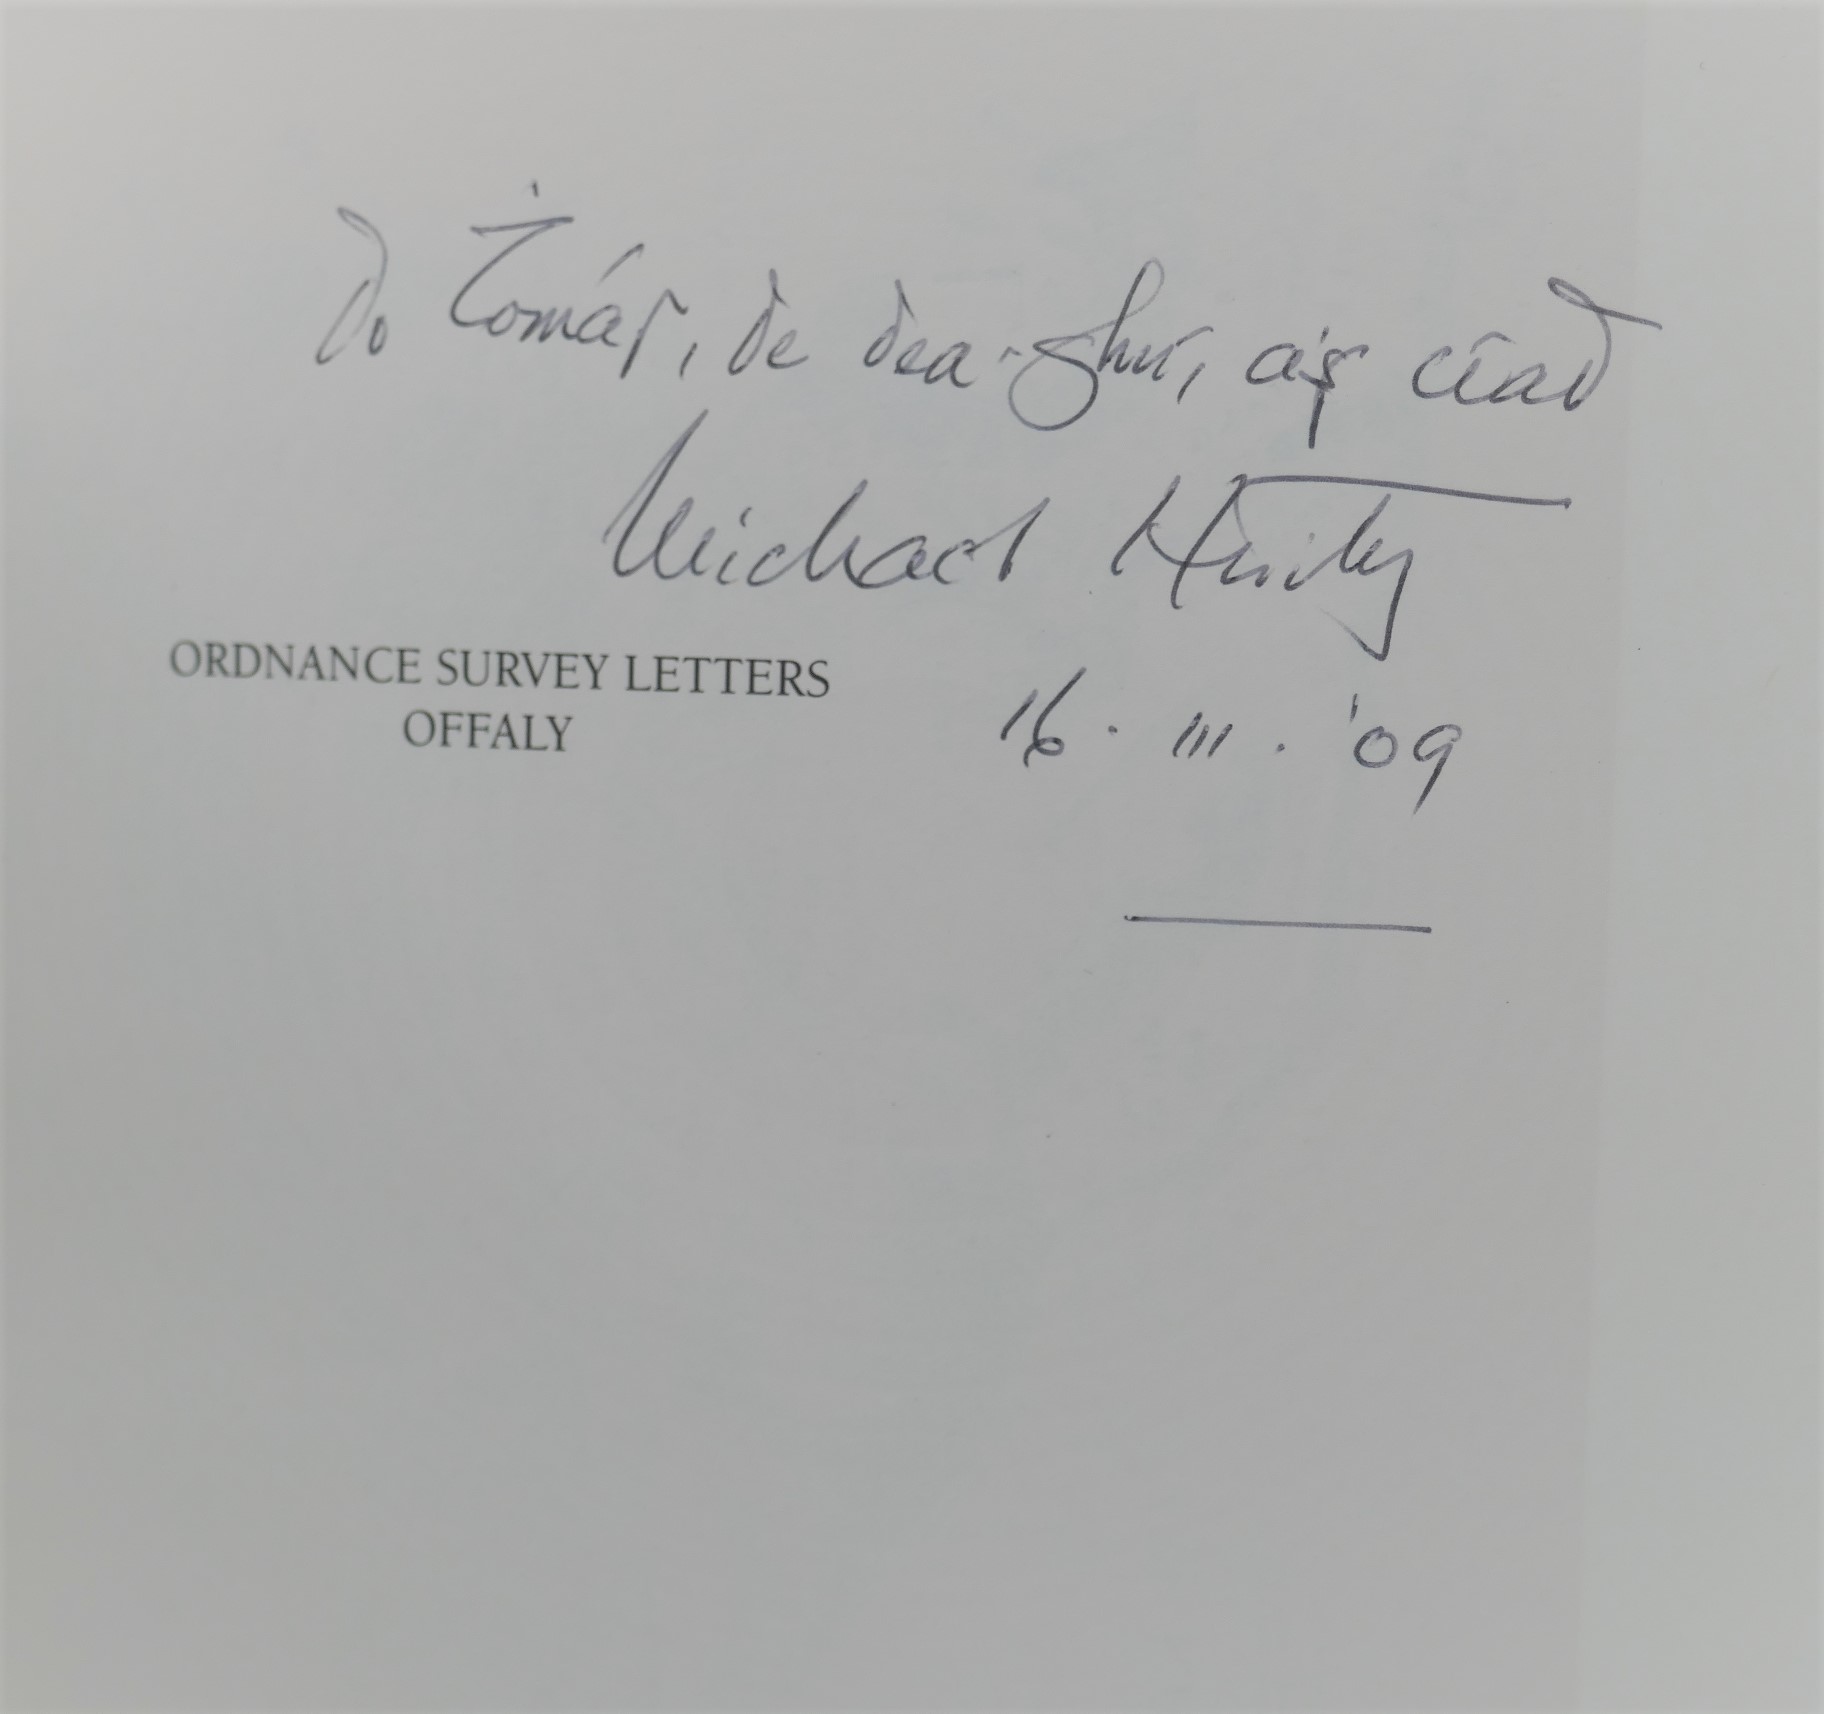 Do Ṫomás, de dea-ghuí, a's cíad
Michael Herity
ORDNANCE SURVEY LETTERS
OFFALY
16 · III · '09